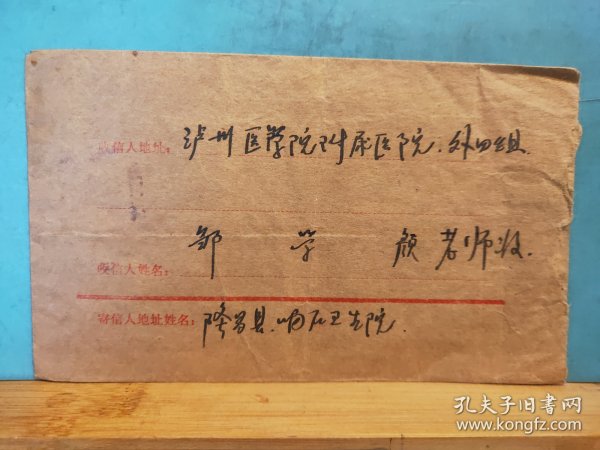 收信人地址：泸州医学院附属医院．外四组．
收信人姓名：邹学颜老师收．
寄信人地址姓名：隆昌县．响石卫生院．
孔夫子旧书网
www.kongfz.com